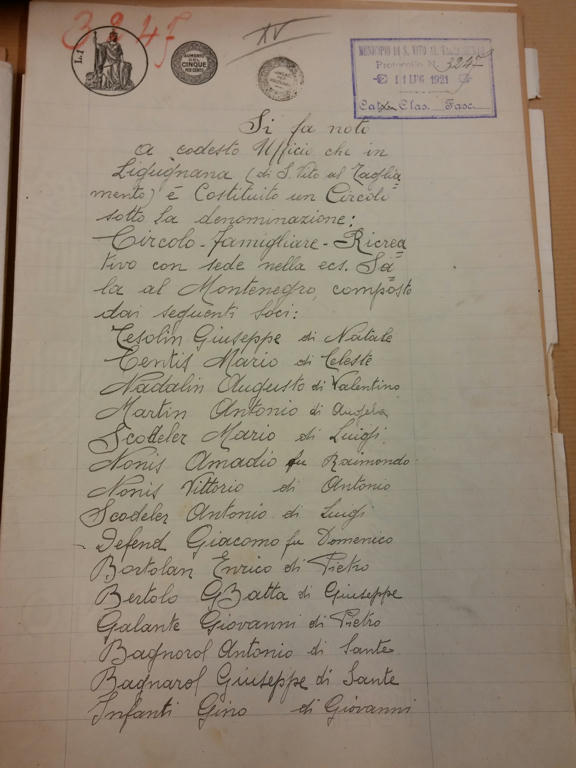 3245
XV
L.1
AUMENTO
DEL
CINQUE
PER CENTO
MUNICIPIO DI S. VITO AL TAGLIAMENTO
Protocollo N. 3245
11 LUG 1921
Cat. Clas. Fasc.
Si fa noto
a codesto Ufficio che in
Ligugnana (di S. Vito al Taglia=
mento) é Costituito un Circolo
sotto la denominazione:
Circolo-Famigliare-Ricrea=
tivo con sede nella ecs. Sa=
la al Montenegro, composto
dai seguenti soci:
Tesolin Giuseppe di Natale
Centis Mario di Celeste
Nadalin Augusto di Valentino
Martin Antonio di Angelo
Scodeler Mario di Luigi
Nonis Amadio fu Raimondo
Nonis Vittorio di Antonio
Scodeler Antonio di Luigi
Defend Giacomo fu Domenico
Bortolan Enrico di Pietro
Bertolo GBatta di Giuseppe
Galante Giovanni di Pietro
Bagnorol Antonio di Sante
Bagnarol Giuseppe di Sante
Infanti Gino di Giovanni